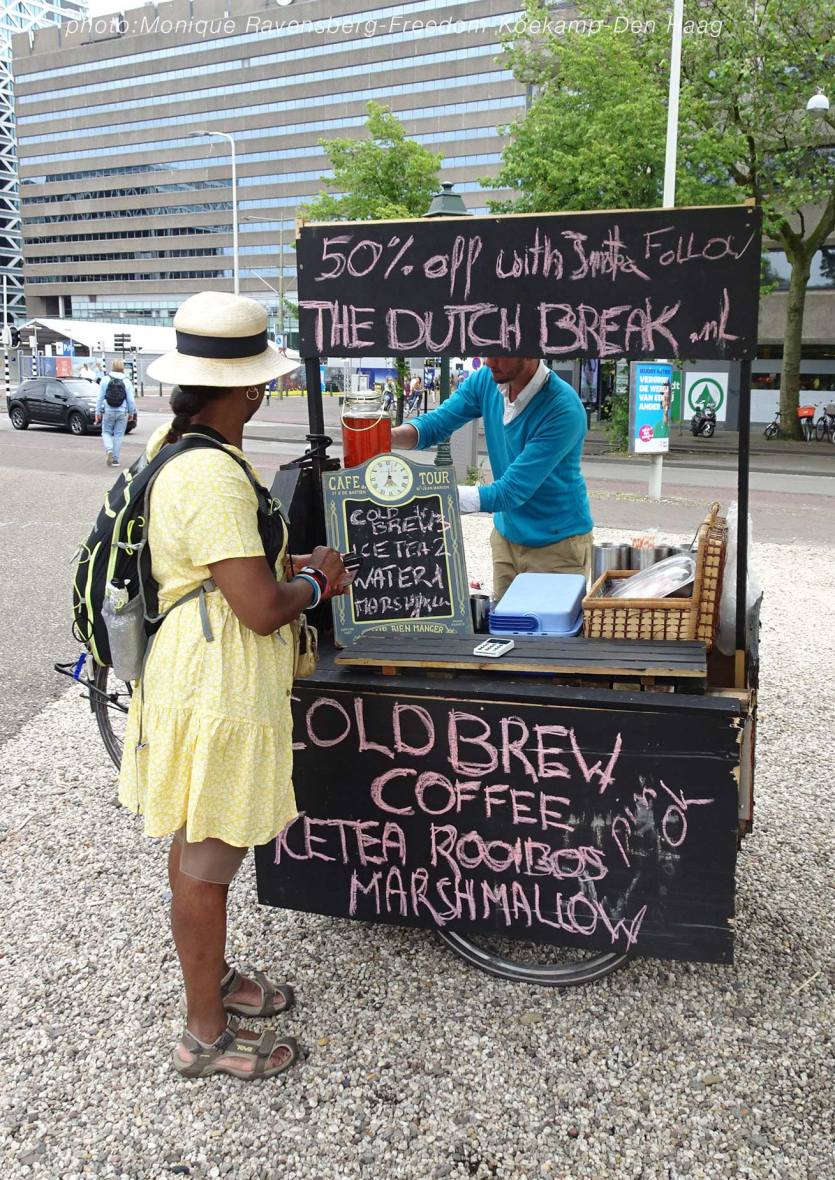 photo:Monique Ravensberg-Freedom-Koekamp-Den Haag
50% off with Insta Follow
THE DUTCH BREAK.nl
CAFE TOUR
COLD BREW 3
ICE TEA 2
WATER 1
MARSHMALL
BIEN MANGER
COLD BREW
COFFEE
ICETEA ROOIBOS
MARSHMALLOW